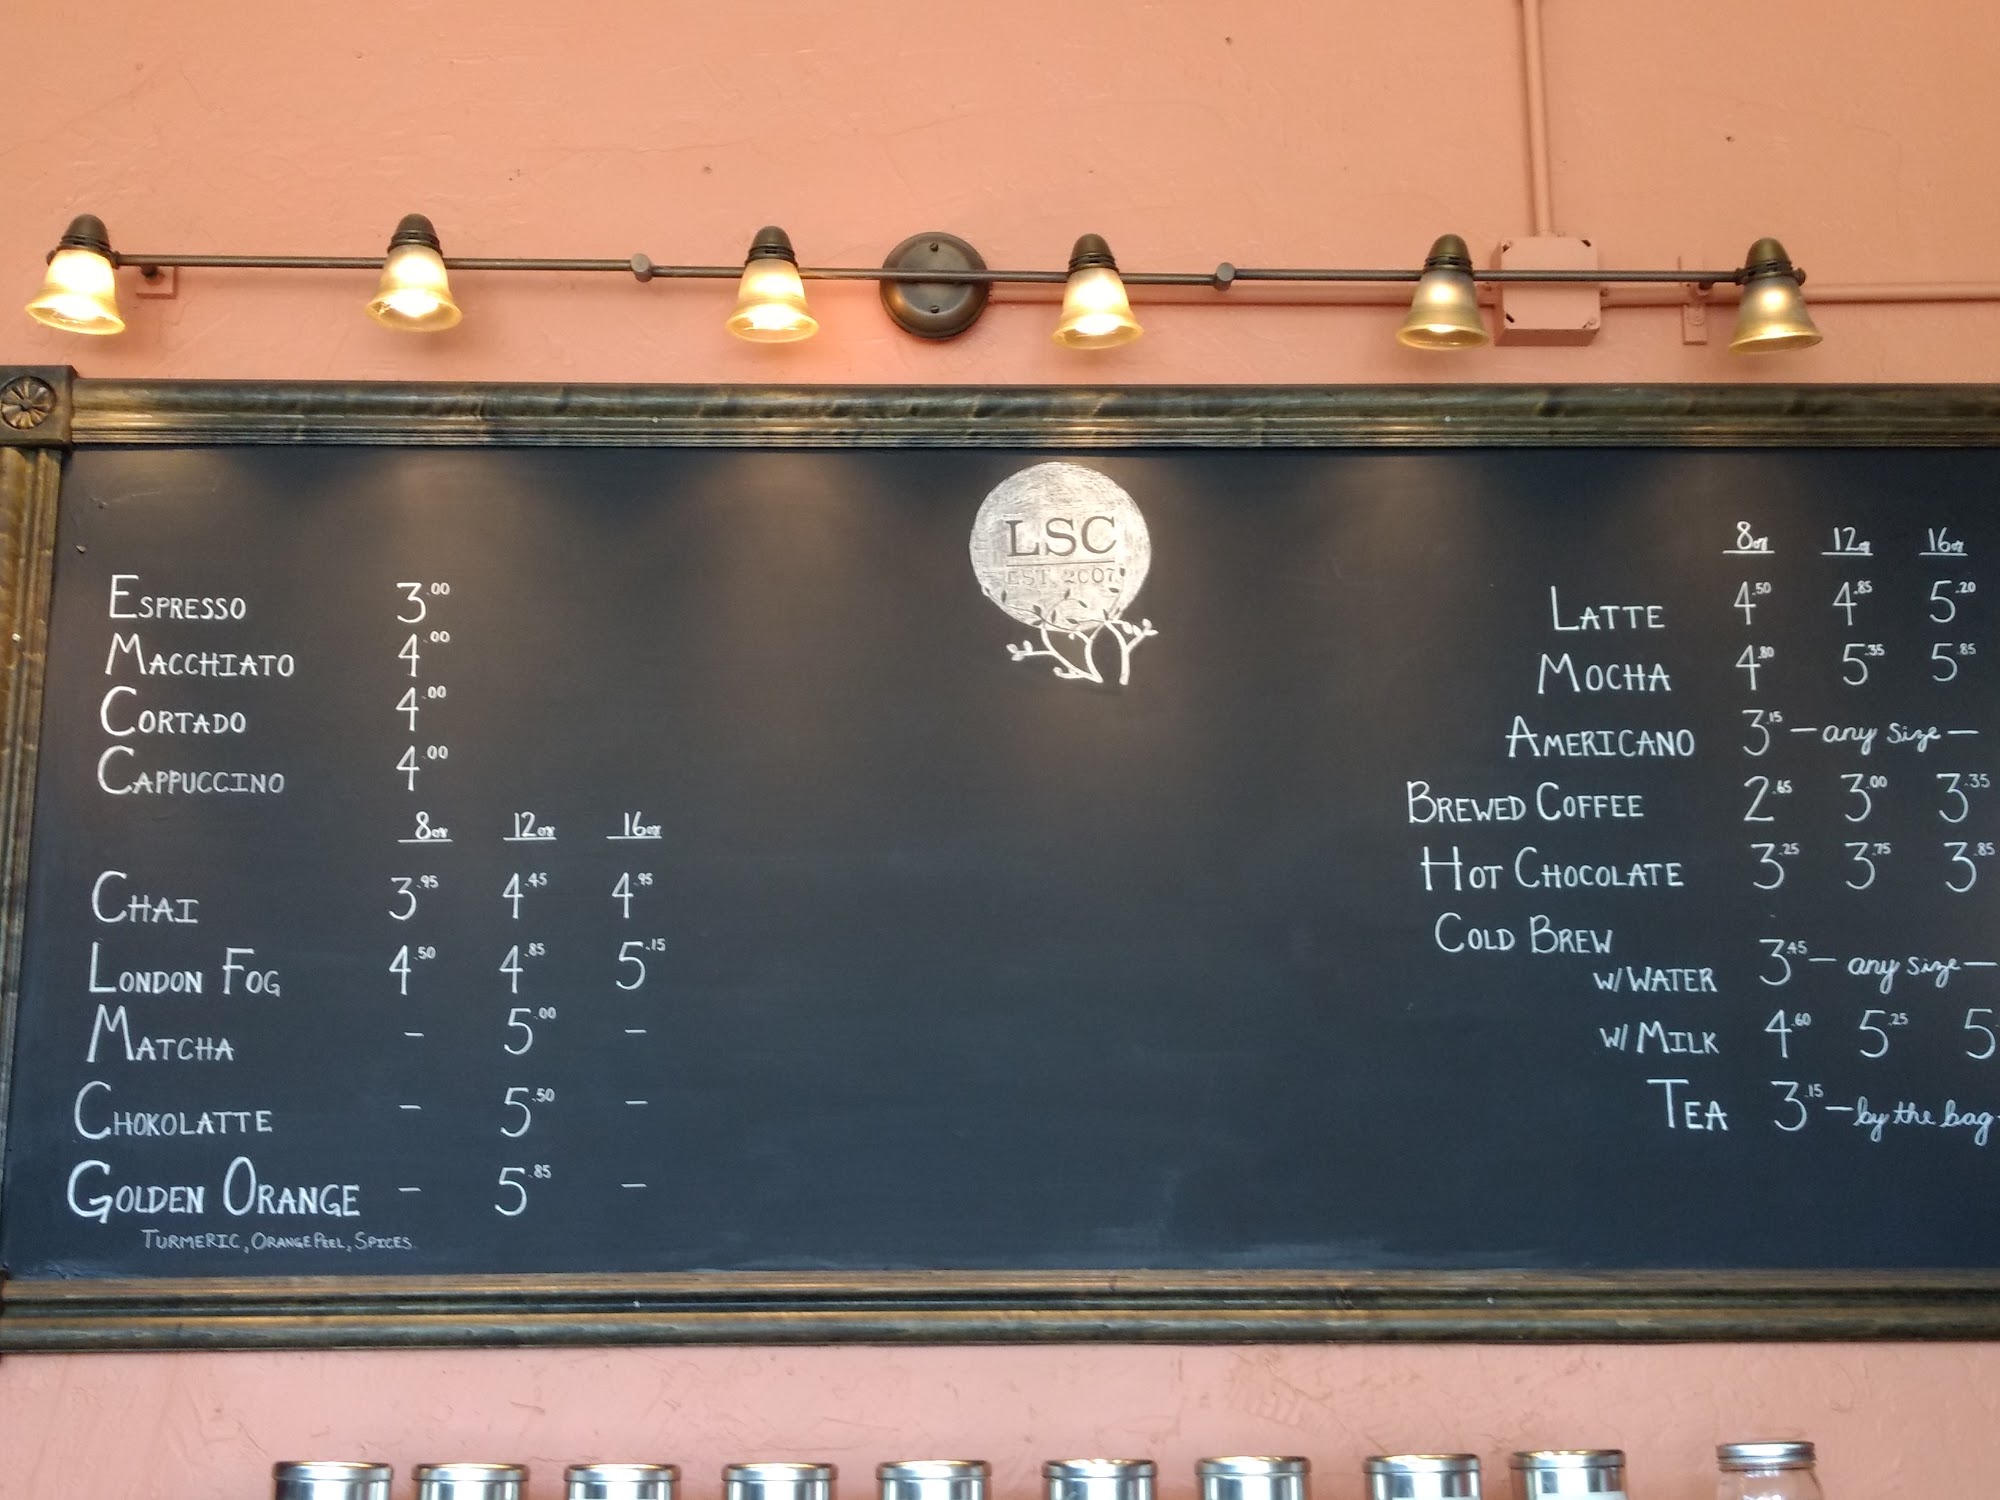 LSC
EST. 2007
ESPRESSO 3.00
MACCHIATO 4.00
CORTADO 4.00
CAPPUCCINO 4.00
8oz 12oz 16oz
CHAI 3.95 4.45 4.95
LONDON FOG 4.50 4.85 5.15
MATCHA - 5.00 -
CHOKOLATTE - 5.50 -
GOLDEN ORANGE - 5.85 -
TURMERIC, ORANGE PEEL, SPICES
8oz 12oz 16oz
LATTE 4.50 4.85 5.20
MOCHA 4.80 5.35 5.85
AMERICANO 3.15 - any size -
BREWED COFFEE 2.65 3.00 3.35
HOT CHOCOLATE 3.25 3.75 3.85
COLD BREW
W/ WATER 3.45 - any size -
W/ MILK 4.60 5.25 5
TEA 3.15 - by the bag -